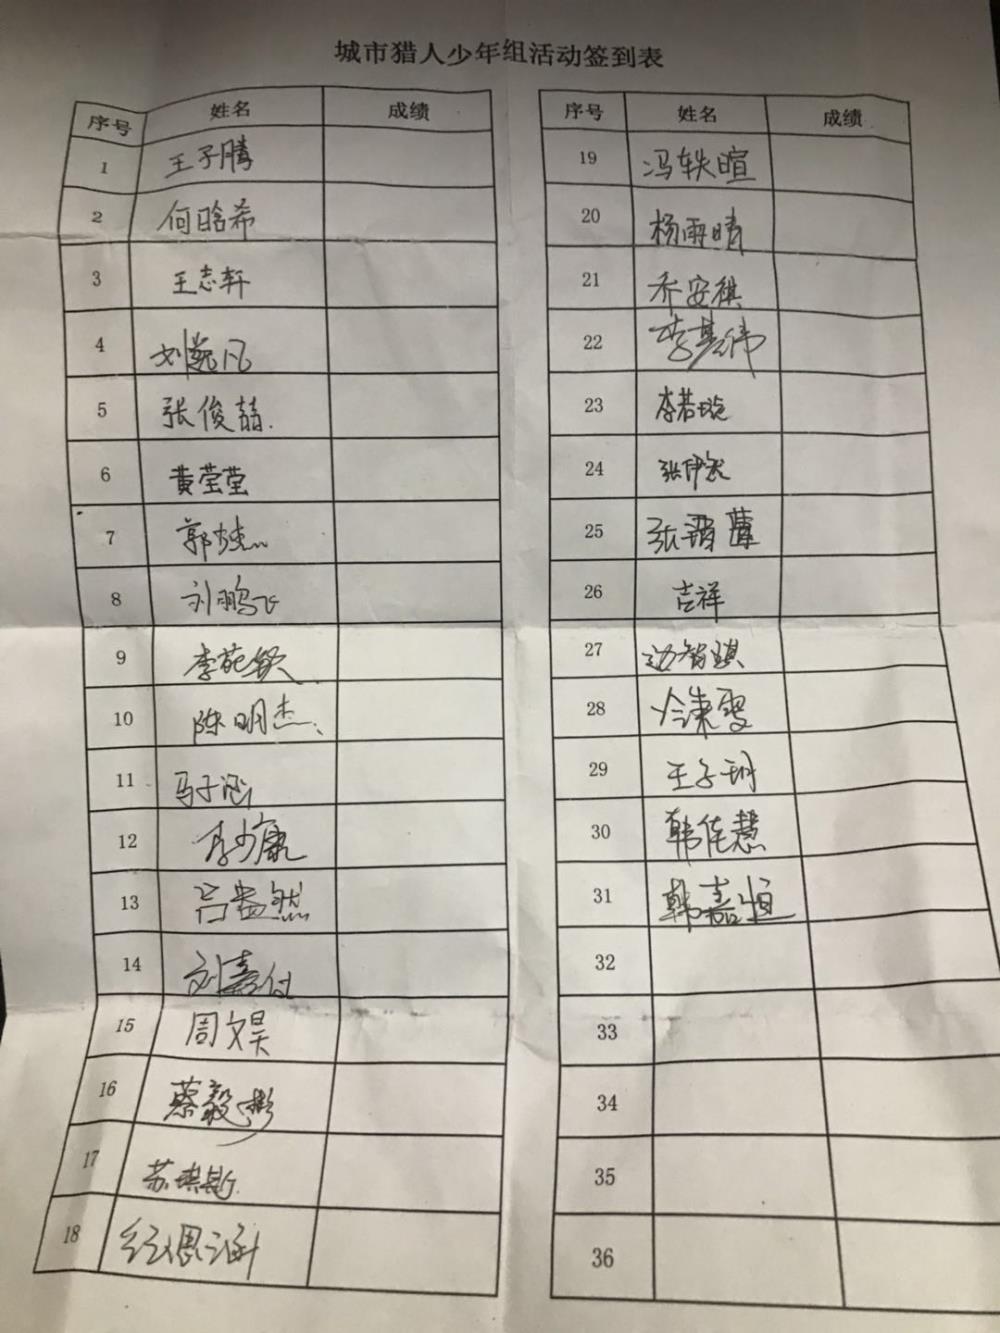 城市猎人少年组活动签到表
序号 姓名 成绩
1 王子腾
2 何晗希
3 王志轩
4 刘宛凡
5 张俊喆
6 黄莹莹
7 郭杰
8 刘鹏飞
9 李苑毓
10 陈明杰
11 马子涵
12 李少康
13 吕浩然
14 刘嘉
15 周文昊
16 蔡毅彬
17 苏琪斯
18 纪恩涵
序号 姓名 成绩
19 冯轶暄
20 杨雨晴
21 乔安祺
22 李基伟
23 李若璇
24 张伊
25 张
26 吉祥
27 边智琪
28 雯
29 王子玥
30 韩佳慧
31 韩嘉恒
32
33
34
35
36